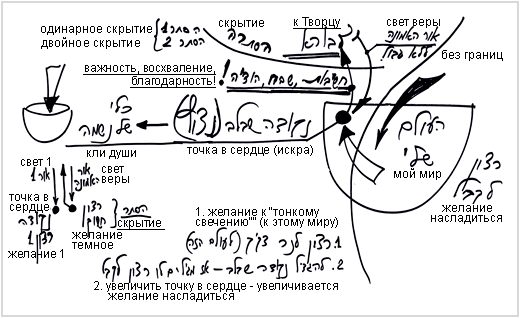 одинарное скрытие
הסתר 1
двойное скрытие
הסתר 2
скрытие
הסתרה
к Творцу
свет веры
אור האמונה
ללא גבול
без границ
важность, восхваление,
благодарность!
חשיבות, שבח, הודיה!
כלי
של נשמה
кли души
נקודה שבלב (ניצוץ)
точка в сердце (искра)
העולם
שלי
мой мир
רצון
לקבל
желание
насладиться
свет 1
אור 1
אור
האמונה
свет
веры
точка в
сердце
נקודה
רצון 1
желание 1
רצון
הסתר
скрытие
желание
темное
1. желание к "тонкому
свечению"" (к этому миру)
1. רצון לנר דקיק (לעולם הזה)
2. להגדיל נקודה שבלב - אז מגדילים לו רצון לקבל
2. увеличить точку в сердце - увеличивается
желание насладиться